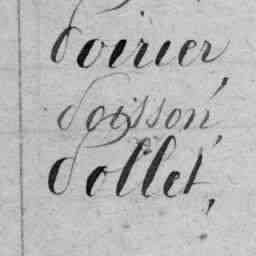 Poirier,
Poisson,
Pollet,